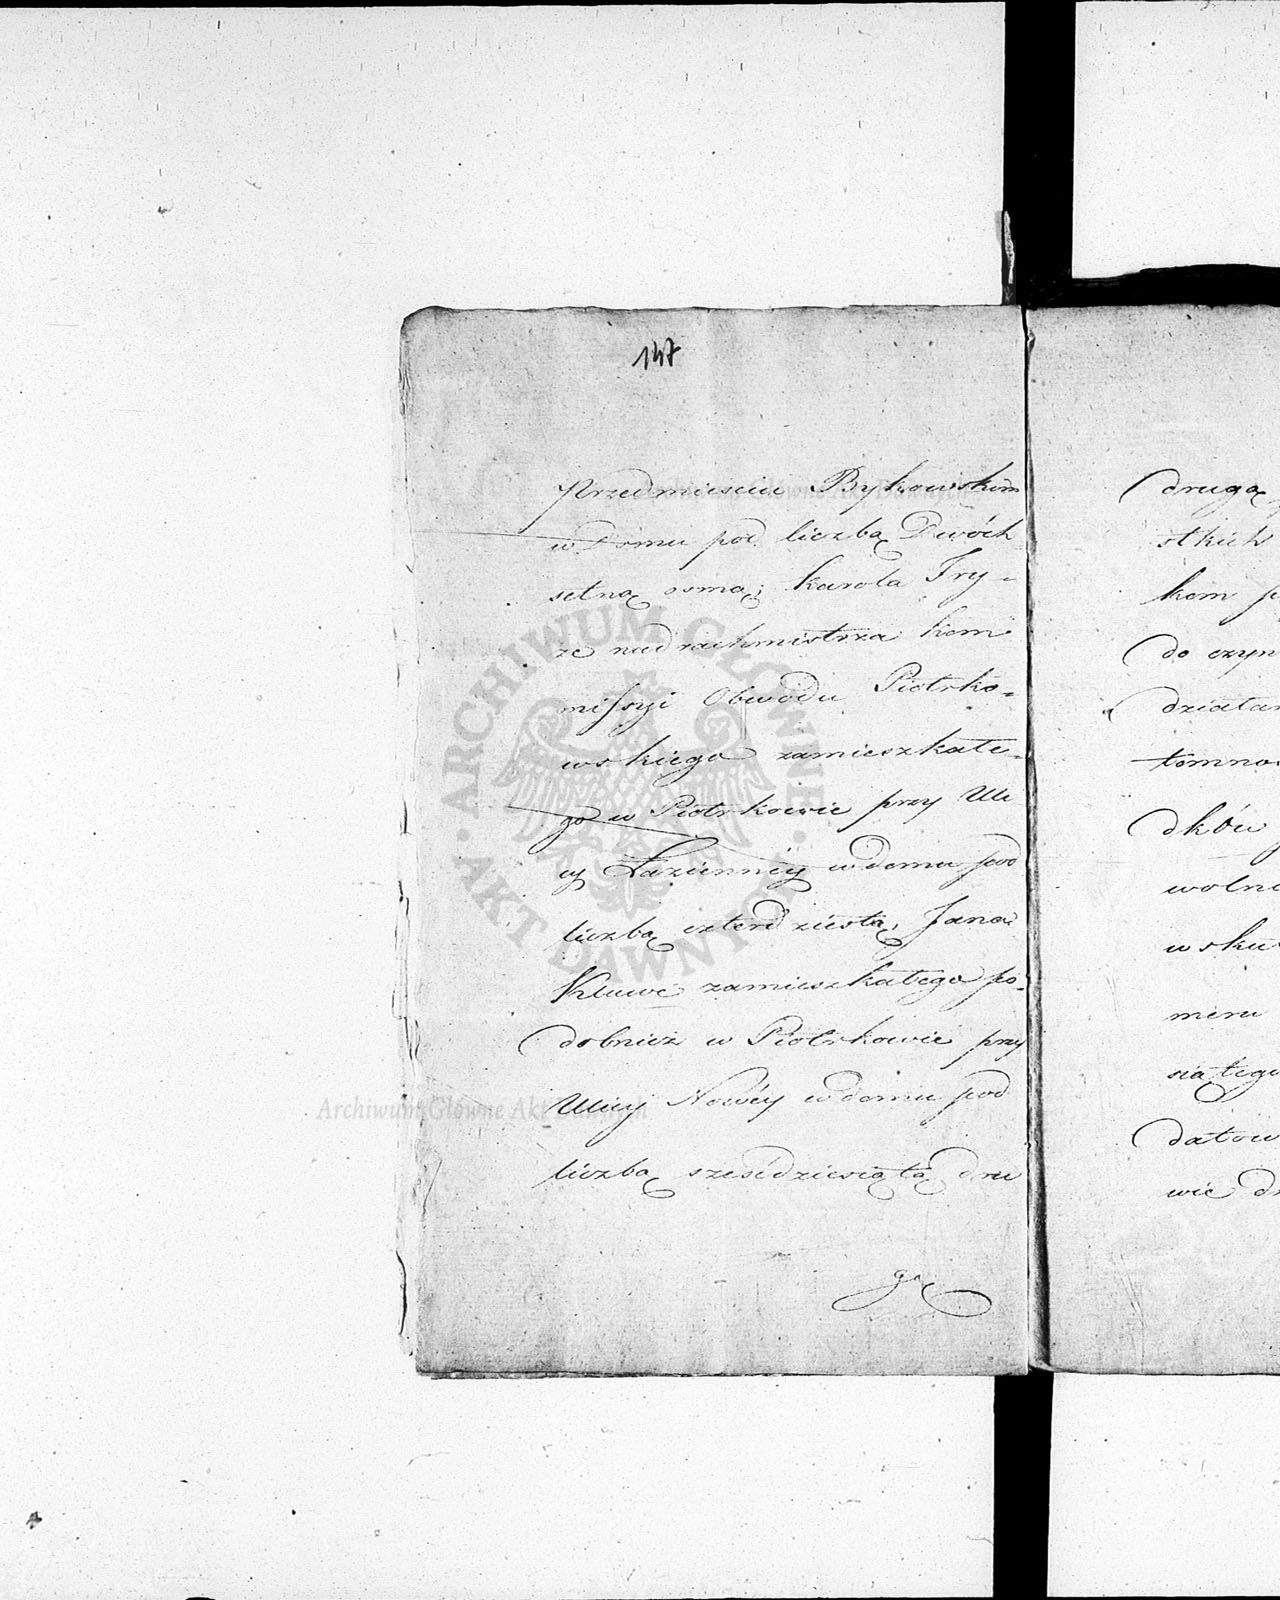 147
Przedmieściu Bykowskim
w Domu pod liczbą Dwóch
setną osmą; Karola Fry-
ze nadrachmistrza kom
missyi Obwodu Piotrko-
wskiego zamieszkałe-
go w Piotrkowie przy Uli
cy Łazienney w domu pod
liczbą czterdziestą, Jana
zamieszkałego po-
dobnież w Piotrkowie przy
Ulicy Nowéy w domu pod
liczbą sześćdziesiątą dru
gą
drugą
stkich
kem
do czyn
działa
tomno
dków
wolni
wsku
meru
siątego
datow
wie
ARCHIWUM GŁÓWNE AKT DAWNYCH
Archiwum Główne Akt Dawnych